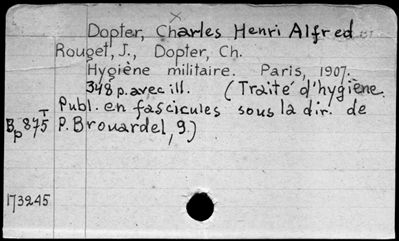 Dopter, Charles Henri Alfred et
Rouget, J., Dopter, Ch.
Hygiène militaire. Paris, 1907.
348 p. avec ill. (Traité d'hygiène.
Publ. en fascicules sous la dir. de
Bp 875 T P. Brouardel, 9.)
173245